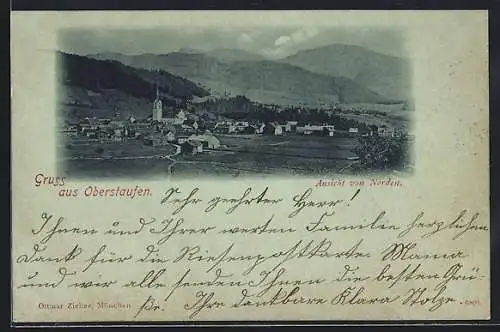 Gruss
aus Oberstaufen.
Ansicht von Norden.
Sehr geehrter Herr!
Ihnen und Ihrer werten Familie herzlichen
Dank für die Riesenpostkarte. Mama
und wir alle senden Ihnen die besten Grü-
ße. Ihre dankbare Klara Stolze.
Ottmar Zieher, München